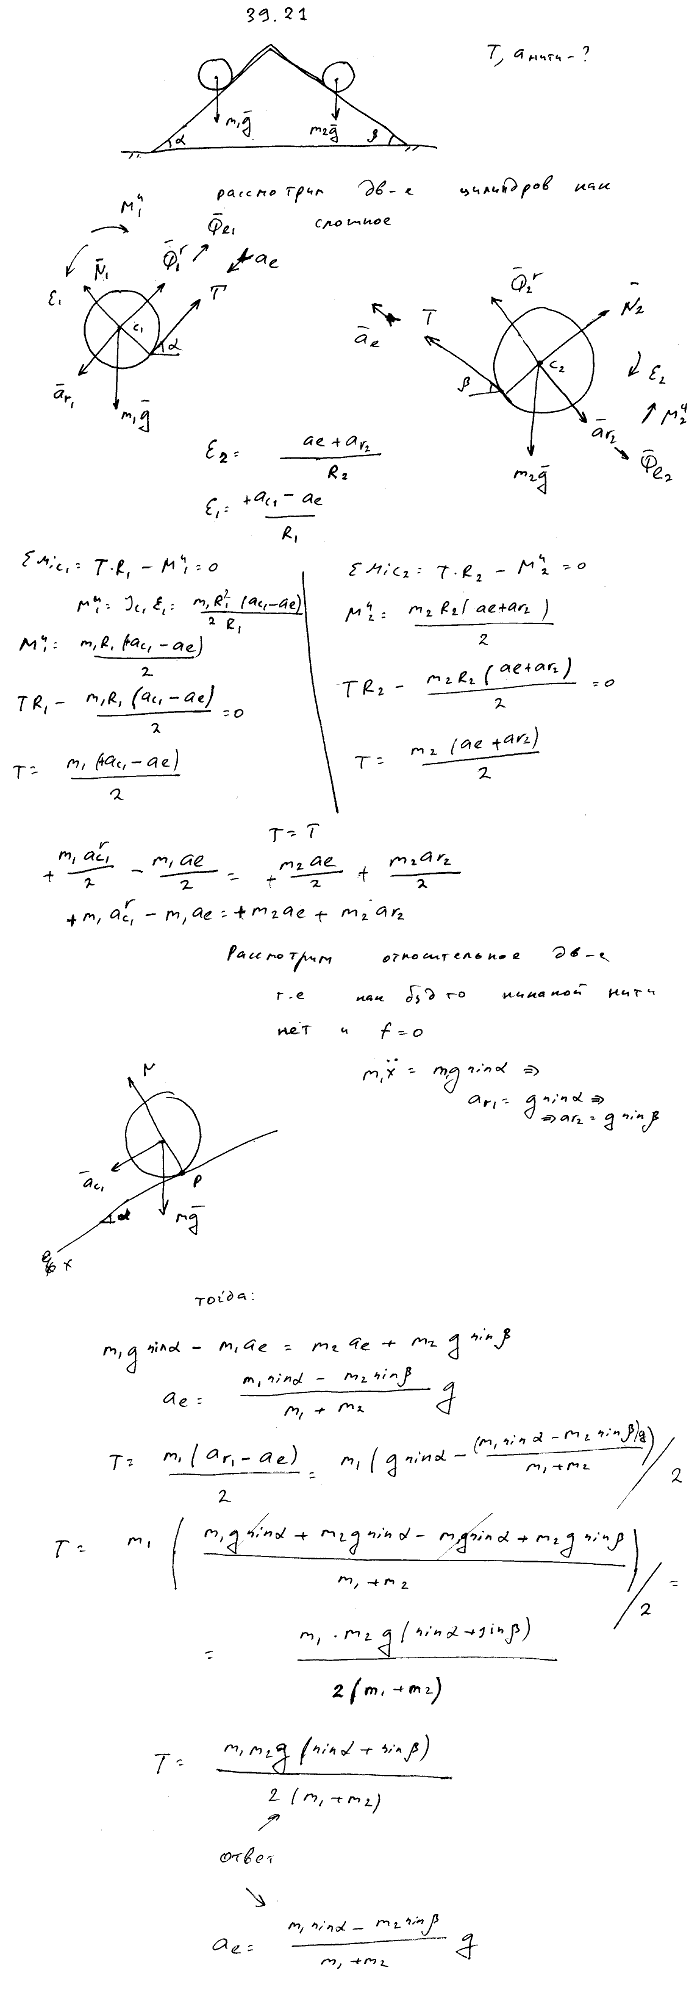 39.21
T, a нити - ?
α
m₁ḡ
m₂ḡ
β
рассмотрим дв-е цилиндров как
сложное
M₁ᵘ
Φ̄e₁
ε₁
N̄₁
Φ̄₁ʳ
ae
T
c₁
α
ār₁
m₁ḡ
Φ̄₂ʳ
N̄₂
āe
T
β
c₂
ε₂
M₂ᵘ
ār₂
Φ̄e₂
m₂ḡ
ε₂ = (ae + ar₂) / R₂
ε₁ = (+ac₁ - ae) / R₁
ΣMic₁ = T·R₁ - M₁ᵘ = 0
M₁ᵘ = Jc₁ ε₁ = m₁R₁² (ac₁ - ae) / 2 R₁
M₁ᵘ = m₁R₁ (+ac₁ - ae) / 2
TR₁ - m₁R₁ (ac₁ - ae) / 2 = 0
T = m₁ (+ac₁ - ae) / 2
ΣMic₂ = T·R₂ - M₂ᵘ = 0
M₂ᵘ = m₂R₂ (ae + ar₂) / 2
TR₂ - m₂R₂ (ae + ar₂) / 2 = 0
T = m₂ (ae + ar₂) / 2
T = T
+ m₁aʳc₁ / 2 - m₁ae / 2 = + m₂ae / 2 + m₂ar₂ / 2
+m₁aʳc₁ - m₁ae = +m₂ae + m₂ar₂
Рассмотрим относительное дв-е
т.е как будто никакой нити
нет и f = 0
m₁ẍ = m₁g sinα ⇒
ar₁ = g sinα ⇒
⇒ ar₂ = g sinβ
N
āc₁
P
α
mḡ
x
тогда:
m₁g sinα - m₁ae = m₂ae + m₂g sinβ
ae = (m₁sinα - m₂sinβ) / (m₁ + m₂) g
T = m₁(ar₁ - ae) / 2 = m₁(g sinα - (m₁sinα - m₂sinβ)g / (m₁+m₂)) / 2
T = m₁ ((m₁g sinα + m₂g sinα - m₁g sinα + m₂g sinβ) / (m₁+m₂)) / 2 =
= m₁·m₂g (sinα + sinβ) / 2(m₁+m₂)
T = m₁m₂g (sinα + sinβ) / 2(m₁+m₂)
ответ
ae = (m₁sinα - m₂sinβ) / (m₁+m₂) g